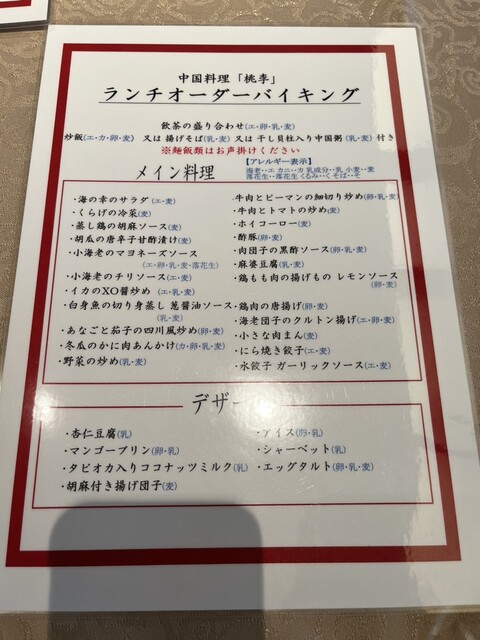 中国料理「桃李」
ランチオーダーバイキング
飲茶の盛り合わせ(エ・卵・乳・麦)
炒飯(エ・カ・卵・麦) 又は 揚げそば(乳・麦) 又は 干し貝柱入り中国粥(乳・麦) 付き
※麺飯類はお声掛けください
【アレルギー表示】
海老・・エ カニ・・カ 乳成分・・乳 小麦・・麦
落花生・・落花生 くるみ・・く そば・・そ
メイン料理
・海の幸のサラダ(エ・麦)
・くらげの冷菜(麦)
・蒸し鶏の胡麻ソース(麦)
・胡瓜の唐辛子甘酢漬け(麦)
・小海老のマヨネーズソース
(エ・卵・乳・麦・落花生)
・小海老のチリソース(エ・麦)
・イカのXO醤炒め(エ・乳・麦)
・白身魚の切り身蒸し 葱醤油ソース
(乳・麦)
・あなごと茄子の四川風炒め(卵・麦)
・冬瓜のかに肉あんかけ(カ・卵・乳・麦)
・野菜の炒め(乳・麦)
牛肉とピーマンの細切り炒め(卵・乳・麦)
・牛肉とトマトの炒め(麦)
・ホイコーロー(麦)
・酢豚(卵・麦)
・肉団子の黒酢ソース(卵・乳・麦)
・麻婆豆腐(乳・麦)
・鶏もも肉の揚げもの レモンソース
(卵・麦)
・鶏肉の唐揚げ(卵・麦)
・海老団子のクルトン揚げ(エ・卵・麦)
・小さな肉まん(麦)
・にら焼き餃子(エ・麦)
・水餃子 ガーリックソース(エ・麦)
デザー
・杏仁豆腐(乳)
・マンゴープリン(卵・乳)
・タピオカ入りココナッツミルク(乳)
・胡麻付き揚げ団子(麦)
・アイス(卵・乳)
・シャーベット(乳)
・エッグタルト(卵・乳・麦)